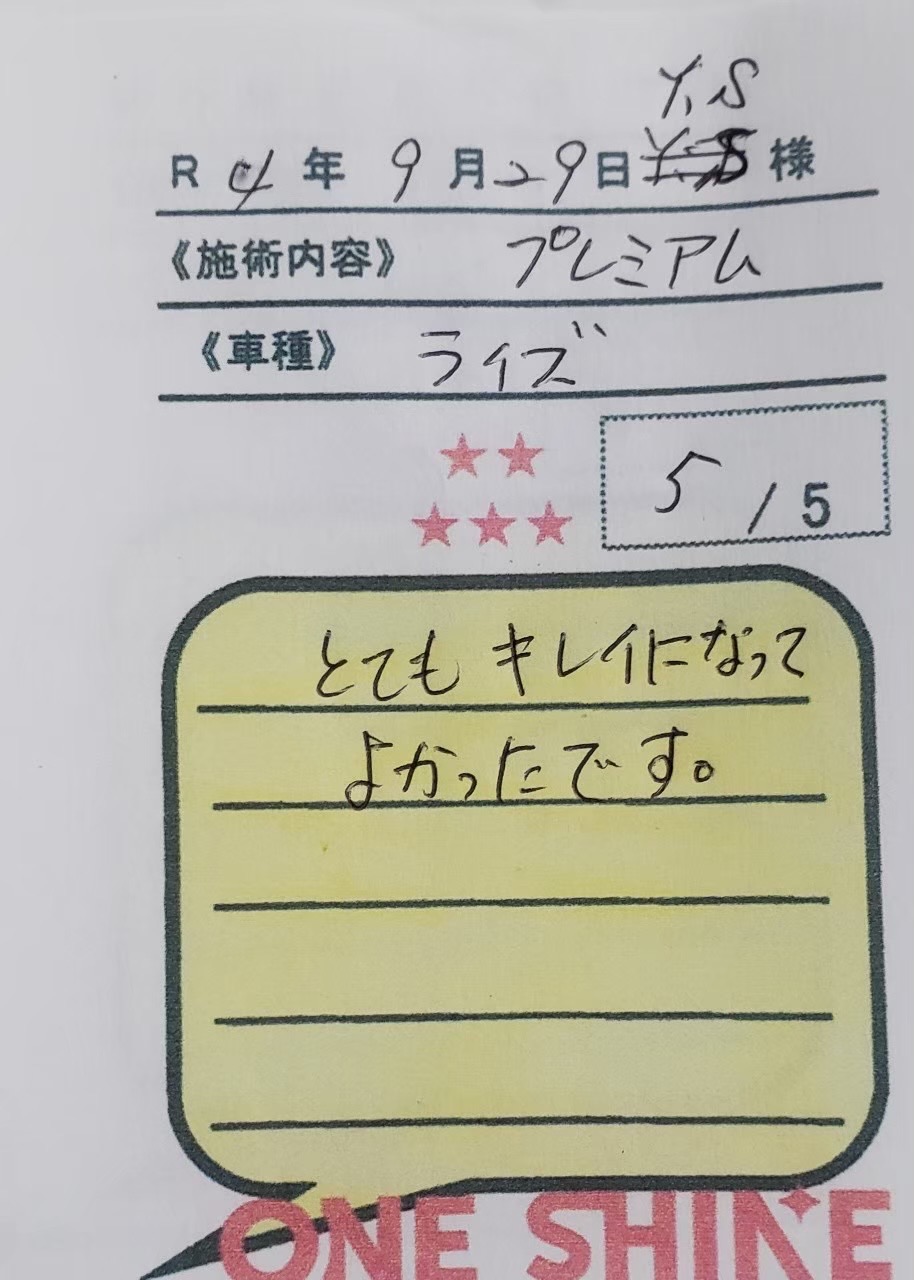 Y.S
R 4 年 9 月 29 日 様
《施術内容》 プレミアム
《車種》 ライズ
5 / 5
とてもキレイになって
よかったです。
ONE SHINE